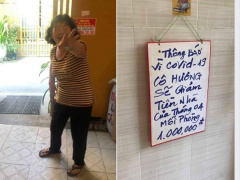 "Thông Báo
Vì Covid-19
CÔ HƯƠNG
SẼ Giảm
Tiền Nhà
Của Tháng 04
Mỗi Phòng
1.000.000 đ